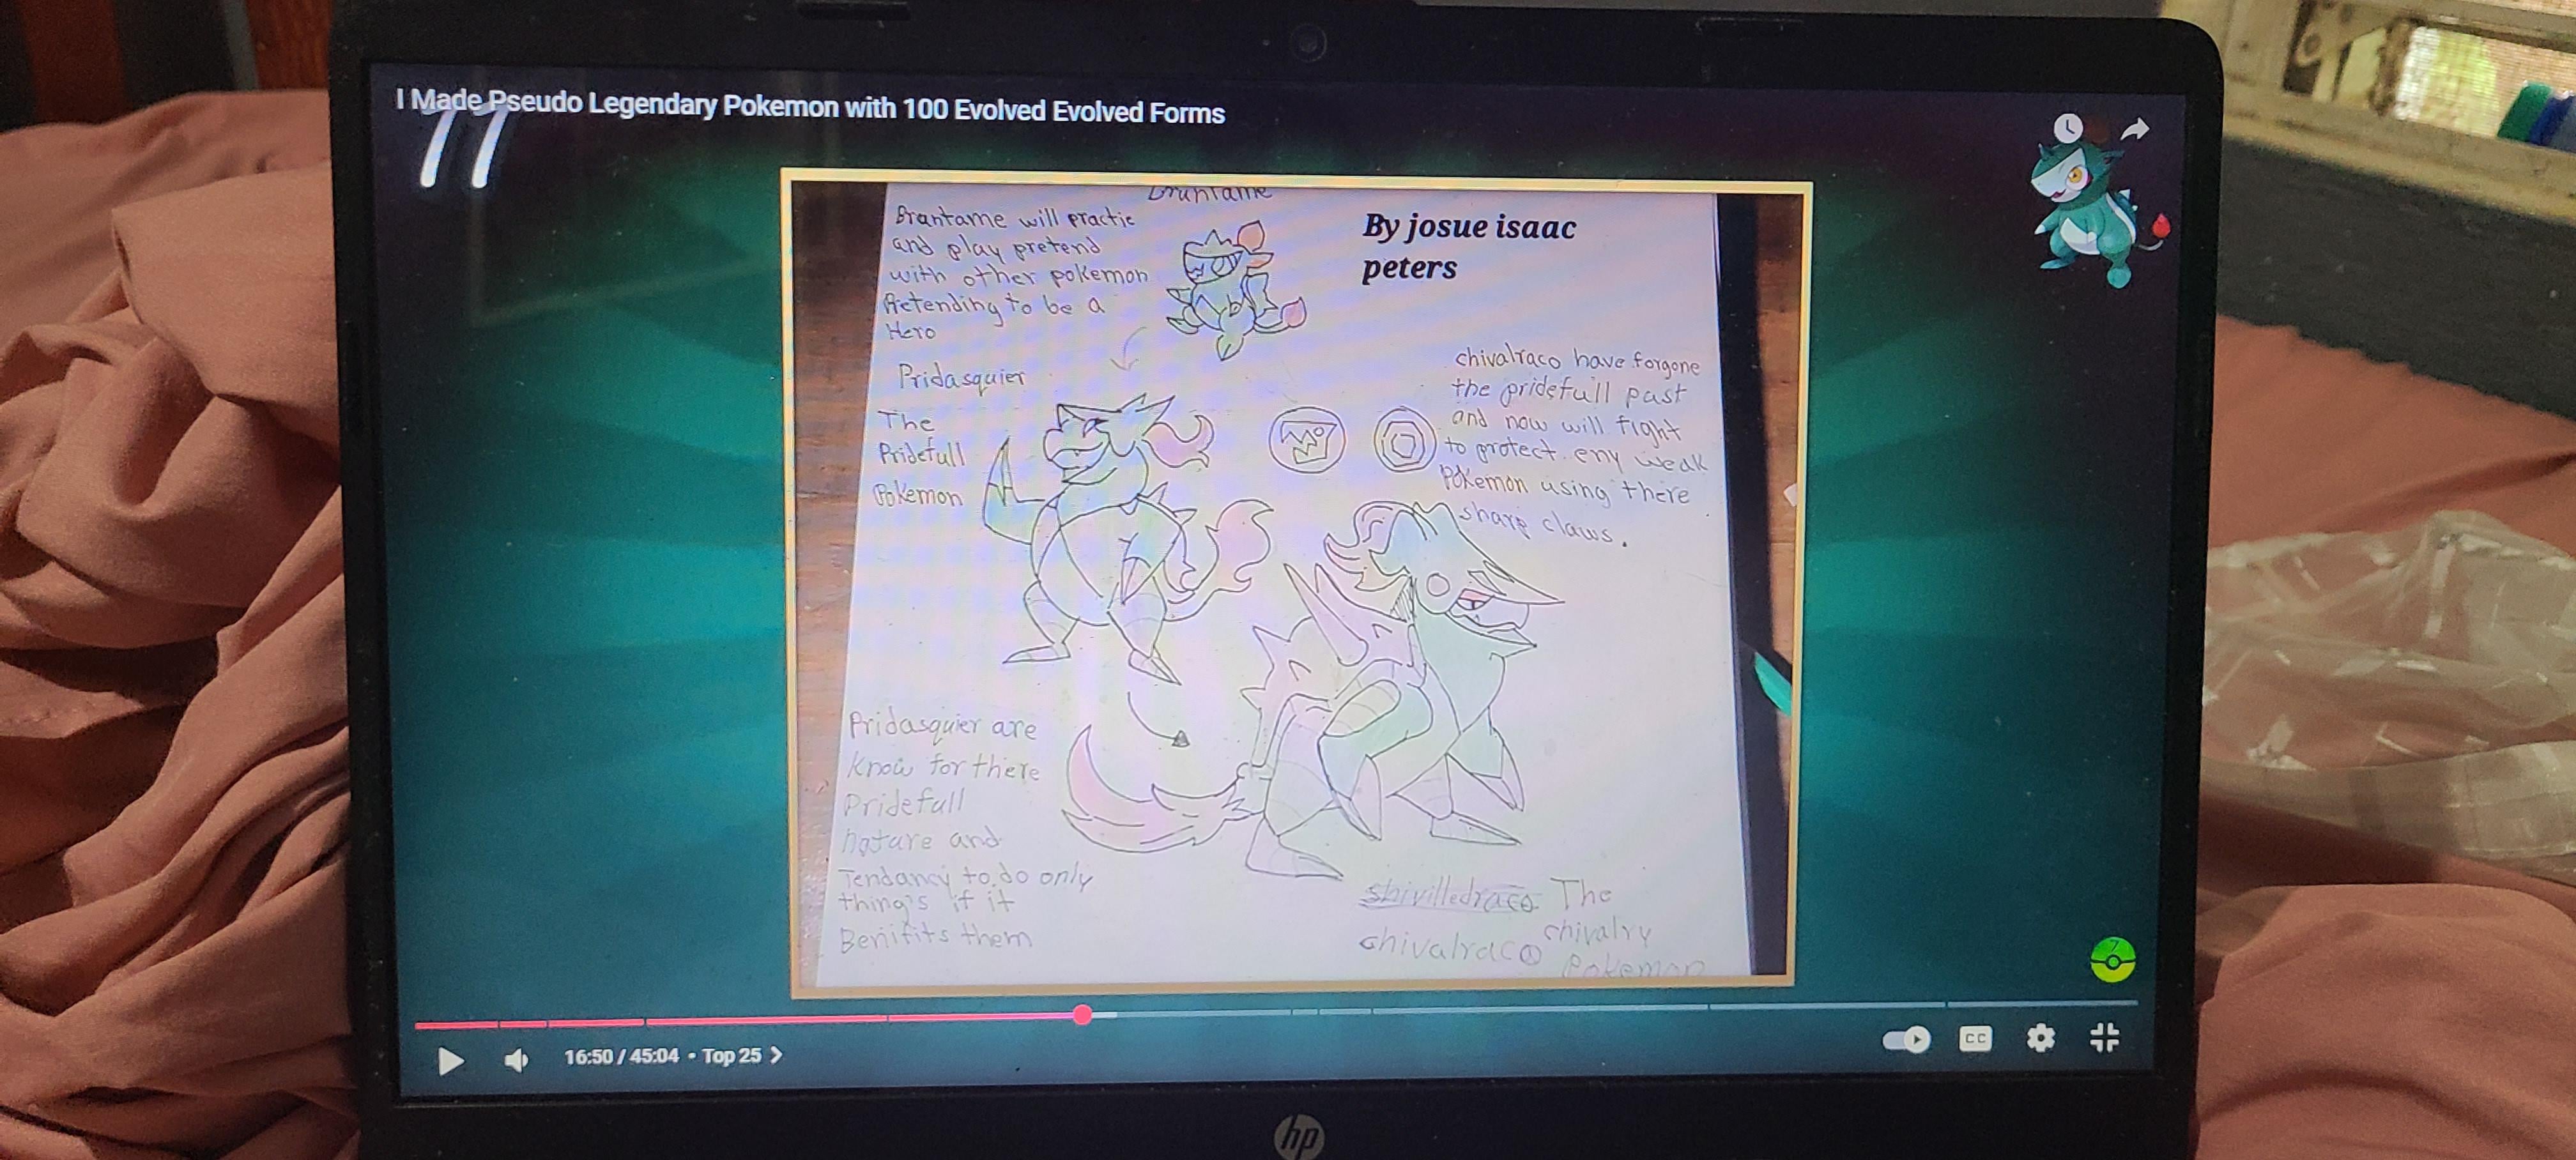 I Made Pseudo Legendary Pokemon with 100 Evolved Evolved Forms
11
Brantame
Brantame will practic
and play pretend
with other pokemon
Pretending to be a
Hero
By josue isaac
peters
Pridasquier
The
Pridefull
Pokemon
chivalraco have forgone
the pridefull past
and now will fight
to protect eny weak
Pokemon using there
sharp claws.
Pridasquier are
Know for there
Pridefull
nature and
Tendancy to do only
things if it
Benifits them
shivilledraco The
chivalraco chivalry
Pokemon
7
16:50 / 45:04 • Top 25 >
CC
hp